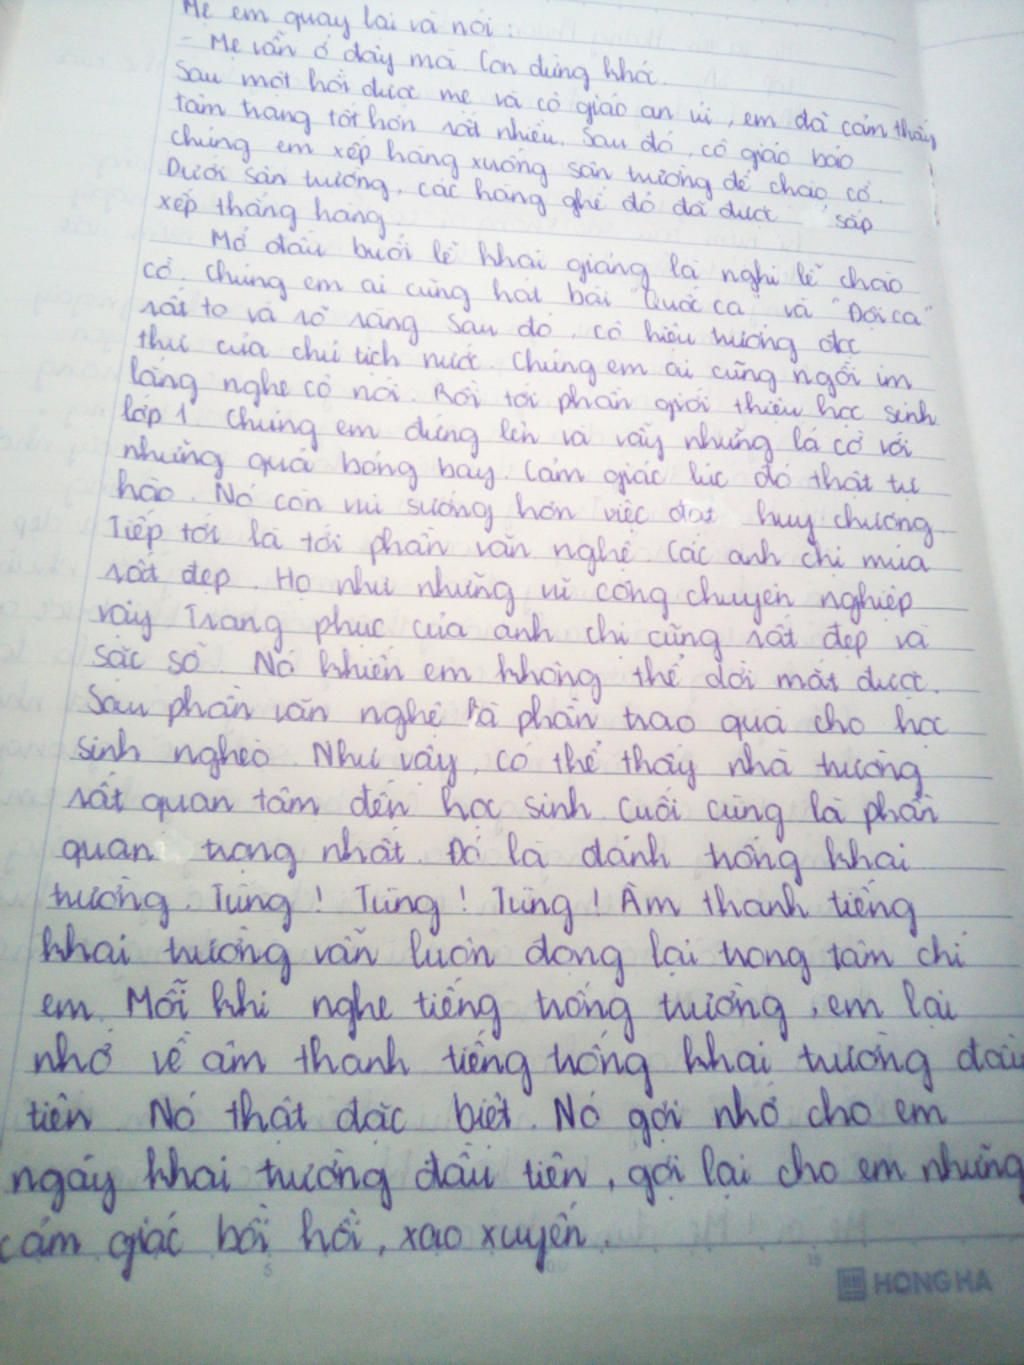 Mẹ em quay lại và nói :
- Mẹ vẫn ở đây mà. Con đừng khóc.
Sau một hồi được mẹ và cô giáo an ủi, em đã cảm thấy
tâm trạng tốt hơn rất nhiều. Sau đó, cô giáo bảo
chúng em xếp hàng xuống sân trường để chào cờ.
Dưới sân trường, các hàng ghế đỏ đã được sắp
xếp thẳng hàng
Mở đầu buổi lễ khai giảng là nghi lễ chào
cờ. Chúng em ai cũng hát bài "Quốc ca" và "Đội ca"
rất to và rõ ràng. Sau đó, cô hiệu trưởng đọc
thư của chủ tịch nước. Chúng em ai cũng ngồi im
lắng nghe cô nói. Rồi tới phần giới thiệu học sinh
lớp 1. Chúng em đứng lên và vẫy những lá cờ với
những quả bóng bay. Cảm giác lúc đó thật tự
hào. Nó còn vui sướng hơn việc đạt huy chương
Tiếp tới là tới phần văn nghệ. Các anh chị múa
rất đẹp. Họ như những vũ công chuyên nghiệp
vậy. Trang phục của anh chị cũng rất đẹp và
sặc sỡ. Nó khiến em không thể dời mắt được.
Sau phần văn nghệ là phần trao quà cho học
sinh nghèo. Như vậy, có thể thấy nhà trường
rất quan tâm đến học sinh. Cuối cùng là phần
quan trọng nhất. Đó là đánh trống khai
trường. Tùng ! Tùng ! Tùng ! Âm thanh tiếng
khai trường vẫn luôn đọng lại trong tâm chí
em. Mỗi khi nghe tiếng trống trường, em lại
nhớ về âm thanh tiếng trống khai trường đầu
tiên. Nó thật đặc biệt. Nó gợi nhớ cho em
ngày khai trường đầu tiên, gợi lại cho em những
cảm giác bồi hồi, xao xuyến.
HONG HA